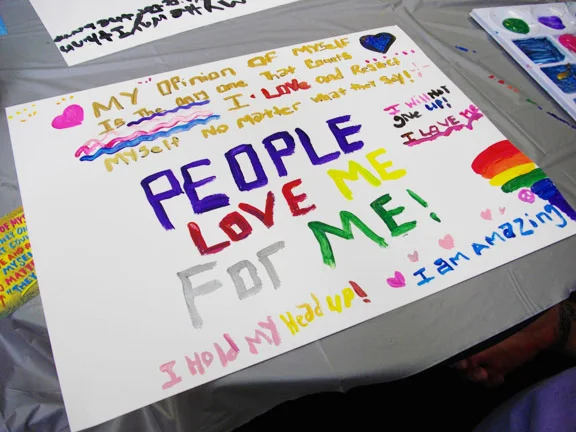 MY Opinion OF MYSELF
Is The Only one That Counts
I LOVe and ResPect
MYSelf No Matter what they Say!
I Will NOT
GIVE UP!
I LOVE ME
PEOPLE
LOVE ME
FOR ME!
I am AMaZing
I HOld MY Head up!